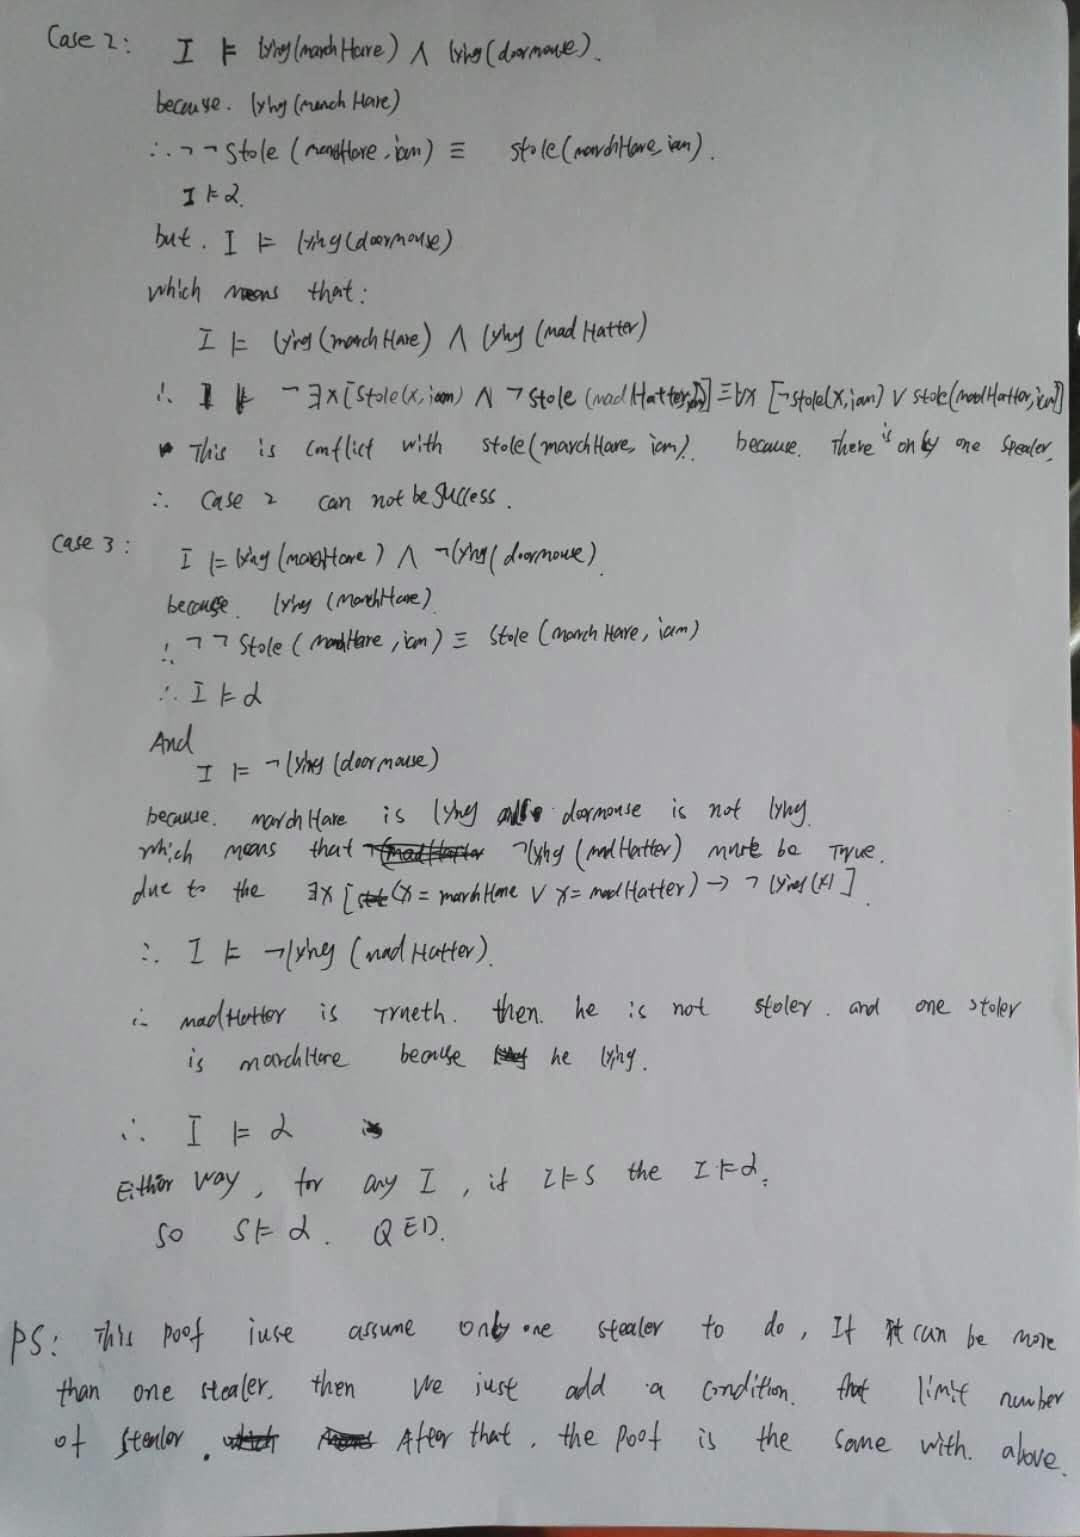 Case 2: I ⊨ lying(marchHare) ∧ lying(doormouse).
because. lying(marchHare)
∴ ¬¬Stole(marchHare, jam) ≡ stole(marchHare, jam).
I ⊨ α.
but. I ⊨ lying(doormouse)
which means that:
I ⊨ lying(marchHare) ∧ lying(madHatter)
∴ I ⊨ ¬∃x[stole(x, jam) ∧ ¬stole(madHatter, jam)] ≡ ∀x [¬stole(x, jam) ∨ stole(madHatter, jam)]
This is conflict with stole(marchHare, jam). because. There is only one stealer.
∴ Case 2 can not be success.
Case 3: I ⊨ lying(marchHare) ∧ ¬lying(doormouse).
because. lying(MarchHare)
∴ ¬¬Stole(marchHare, jam) ≡ Stole(marchHare, jam)
∴ I ⊨ α
And
I ⊨ ¬lying(doormouse)
because. marchHare is lying doormouse is not lying.
which means that ¬lying(madHatter) must be True.
due to the ∃x[(x = marchHare ∨ x = madHatter) → ¬lying(x)].
∴ I ⊨ ¬lying(madHatter).
∴ madHatter is Trueth. then. he is not stoler. and one stoler
is marchHare because he lying.
∴ I ⊨ α
Either way, for any I, if I ⊨ S the I ⊨ α.
So S ⊨ α. QED.
PS: This poof juse assume only one stealer to do, If it can be more
than one stealer. then we just add a condition. that limit number
of stealor. After that. the poof is the same with. above.